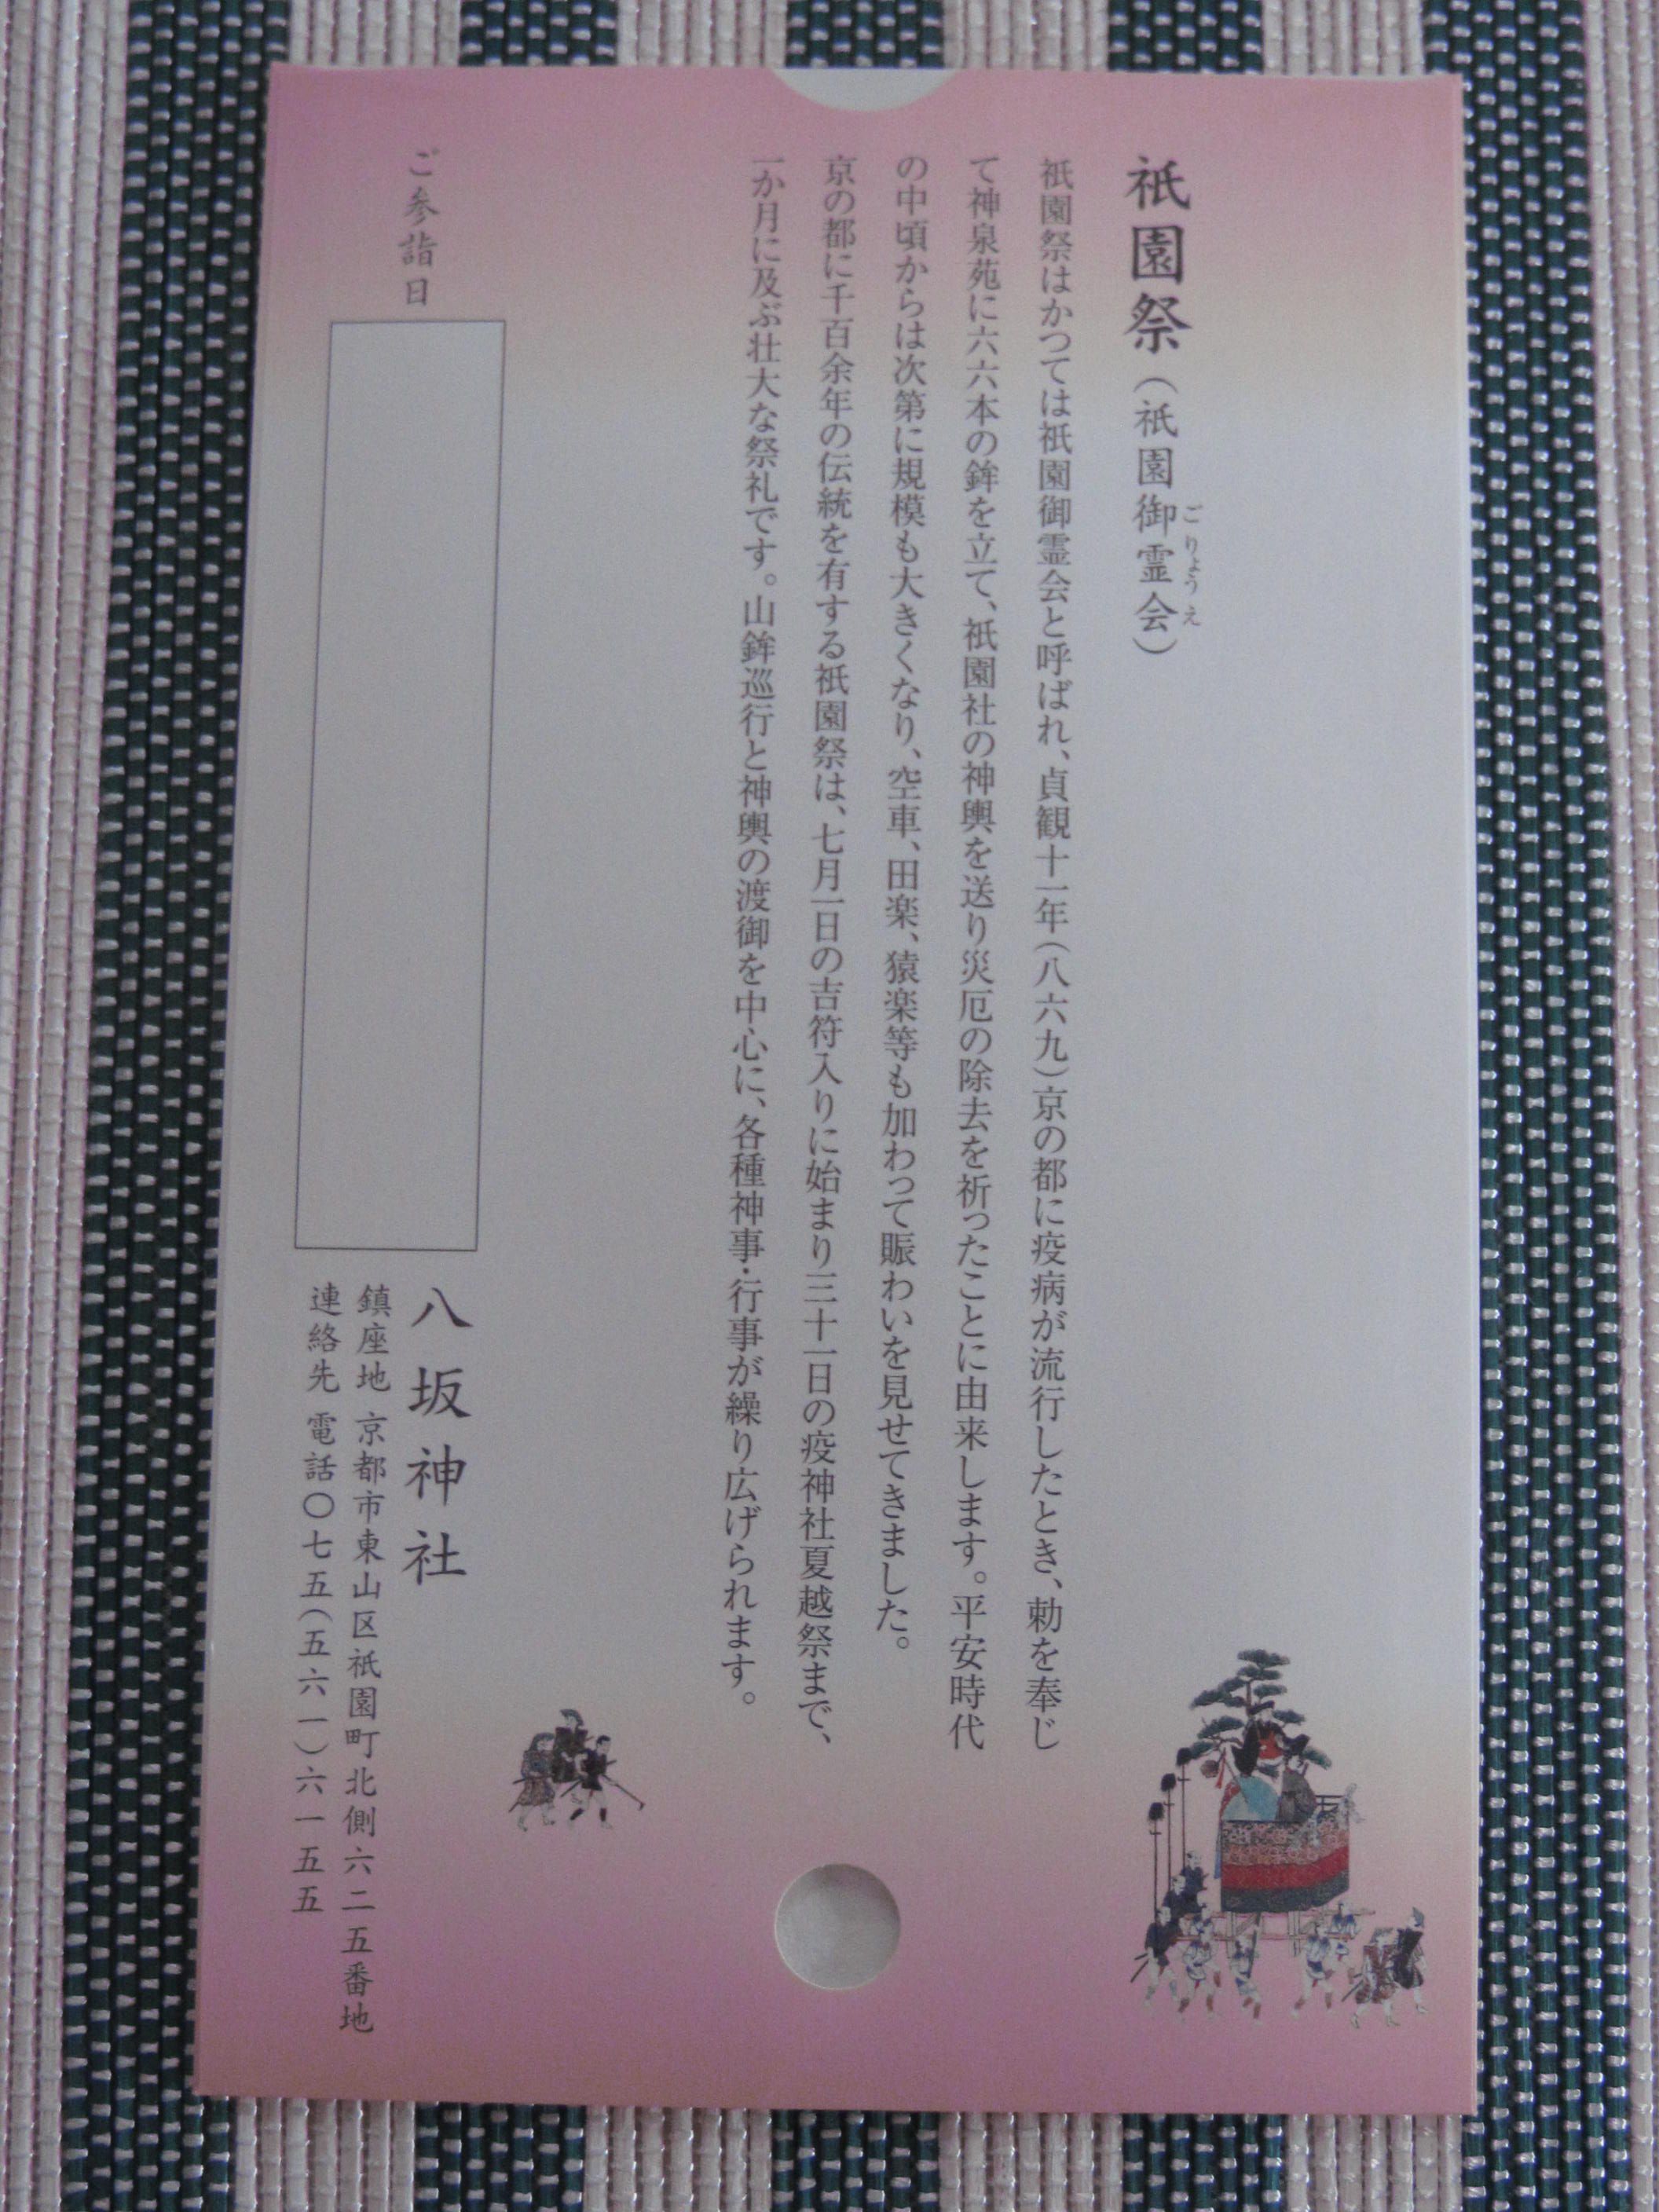 祇園祭（祇園御霊会）
ごりょうえ
祇園祭はかつては祇園御霊会と呼ばれ、貞観十一年（八六九）京の都に疫病が流行したとき、勅を奉じ
て神泉苑に六六本の鉾を立て、祇園社の神輿を送り災厄の除去を祈ったことに由来します。平安時代
の中頃からは次第に規模も大きくなり、空車、田楽、猿楽等も加わって賑わいを見せてきました。
京の都に千百余年の伝統を有する祇園祭は、七月一日の吉符入りに始まり三十一日の疫神社夏越祭まで、
一か月に及ぶ壮大な祭礼です。山鉾巡行と神輿の渡御を中心に、各種神事・行事が繰り広げられます。
ご参詣日
八坂神社
鎮座地 京都市東山区祇園町北側六二五番地
連絡先 電話〇七五（五六一）六一五五